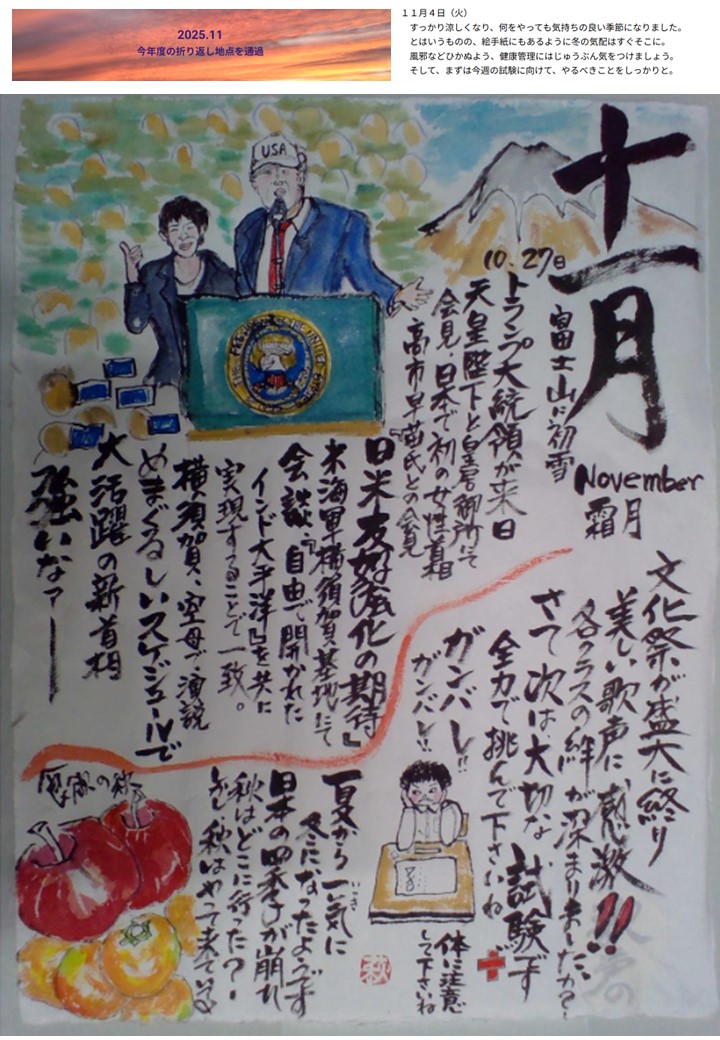 2025.11
今年度の折り返し地点を通過
11月4日（火）
すっかり涼しくなり、何をやっても気持ちの良い季節になりました。
とはいうものの、絵手紙にもあるように冬の気配はすぐそこに。
風邪などひかぬよう、健康管理にはじゅうぶん気をつけましょう。
そして、まずは今週の試験に向けて、やるべきことをしっかりと。
十一月
November
霜月
10.27日
富士山に初雪
トランプ大統領が来日
天皇陛下と皇居御所にて
会見、日本で初の女性首相
高市早苗氏との会見
USA
日米友好強化の期待
米海軍横須賀基地にて
会談、『自由で開かれた
インド太平洋』を共に
実現することで一致。
横須賀、空母で演説
めまぐるしいスケジュールで
大活躍の新首相
強いなァー
文化祭が盛大に終り
美しい歌声に感激!!
各クラスの絆が深まりましたか？
さて次は、大切な試験です
全力で挑んで下さいね
ガンバレ!!
ガンバレ!!
体に注意
して下さいね
夏から一気に
いっき
冬になったようです
日本の四季が崩れ
秋はどこに行った？
秋はやって来ている
の秋
秋